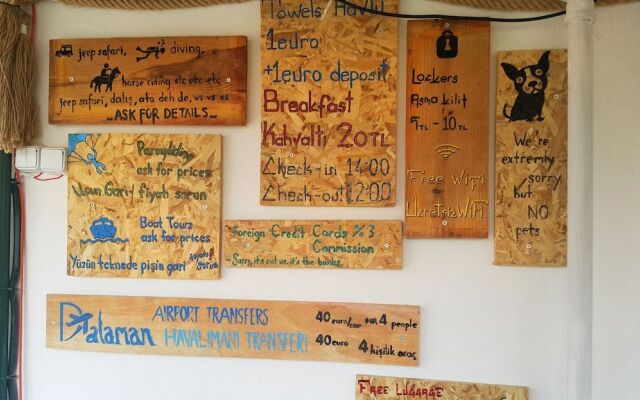 jeep safari, diving,
horse riding etc etc etc
jeep safari, dalış, ata deh de, vs vs vs
...ASK FOR DETAILS...
Towels Havlu
1euro
+1euro deposit
Breakfast
Kahvaltı 20TL
Check-in 14:00
Check-out 12:00
Lockers
Asma kilit
5TL - 10TL
Free WiFi
Ücretsiz WiFi
We're
extremly
sorry
but
NO
pets
Paragliding
ask for prices
Uçun Gari - fiyatı sorun
Boat Tours
ask for prices
Yüzün teknede pişin gari fiyatı sorun
Foreign Credit Cards %3
Commission
- Sorry, it's not us, it's the banks.
Dalaman AIRPORT TRANSFERS 40 euro/car for 4 people
HAVALİMANI TRANSFERİ 40 euro 4 kişilik araç
FREE LUGGAGE